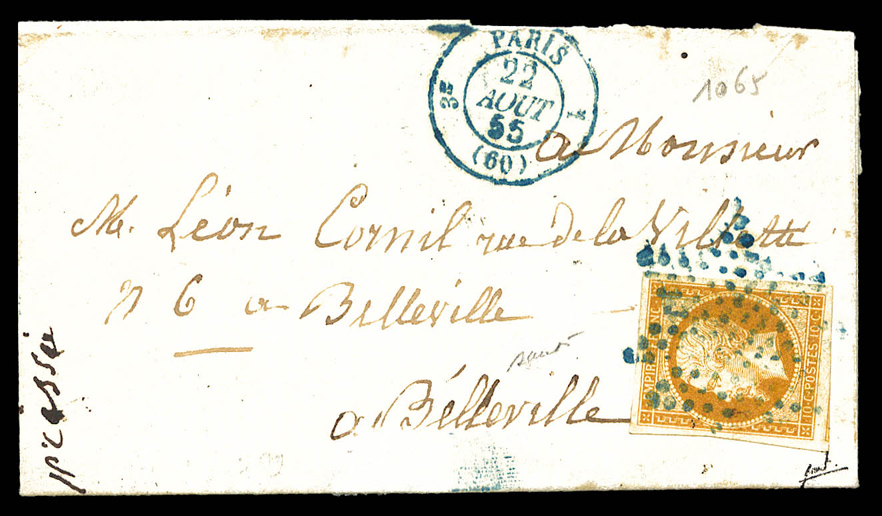 PARIS
22
AOUT
55
(60)
1065
a Monsieur
M. Léon Cornil rue de la Villette
n 6 a Belleville
a Bélleville
pressée
EMPIRE FRANC.
10·C·POSTES·10·C·